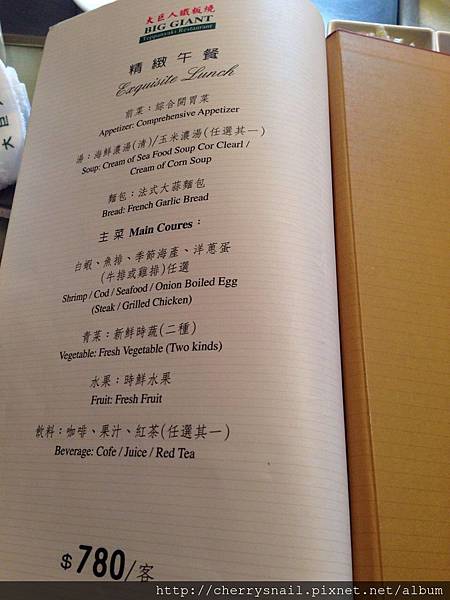 大巨人鐵板燒
BIG GIANT
Teppanyaki Restaurant
精緻午餐
Exquisite Lunch
前菜：綜合開胃菜
Appetizer: Comprehensive Appetizer
湯：海鮮濃湯(清)/玉米濃湯(任選其一)
Soup: Cream of Sea Food Soup Cor Clearl /
Cream of Corn Soup
麵包：法式大蒜麵包
Bread: French Garlic Bread
主菜 Main Coures：
白蝦、魚排、季節海產、洋蔥蛋
(牛排或雞排)任選
Shrimp / Cod / Seafood / Onion Boiled Egg
(Steak / Grilled Chicken)
青菜：新鮮時蔬(二種)
Vegetable: Fresh Vegetable (Two kinds)
水果：時鮮水果
Fruit: Fresh Fruit
飲料：咖啡、果汁、紅茶(任選其一)
Beverage: Cofe / Juice / Red Tea
$780/客
大巨人
http://cherrysnail.pixnet.net/album